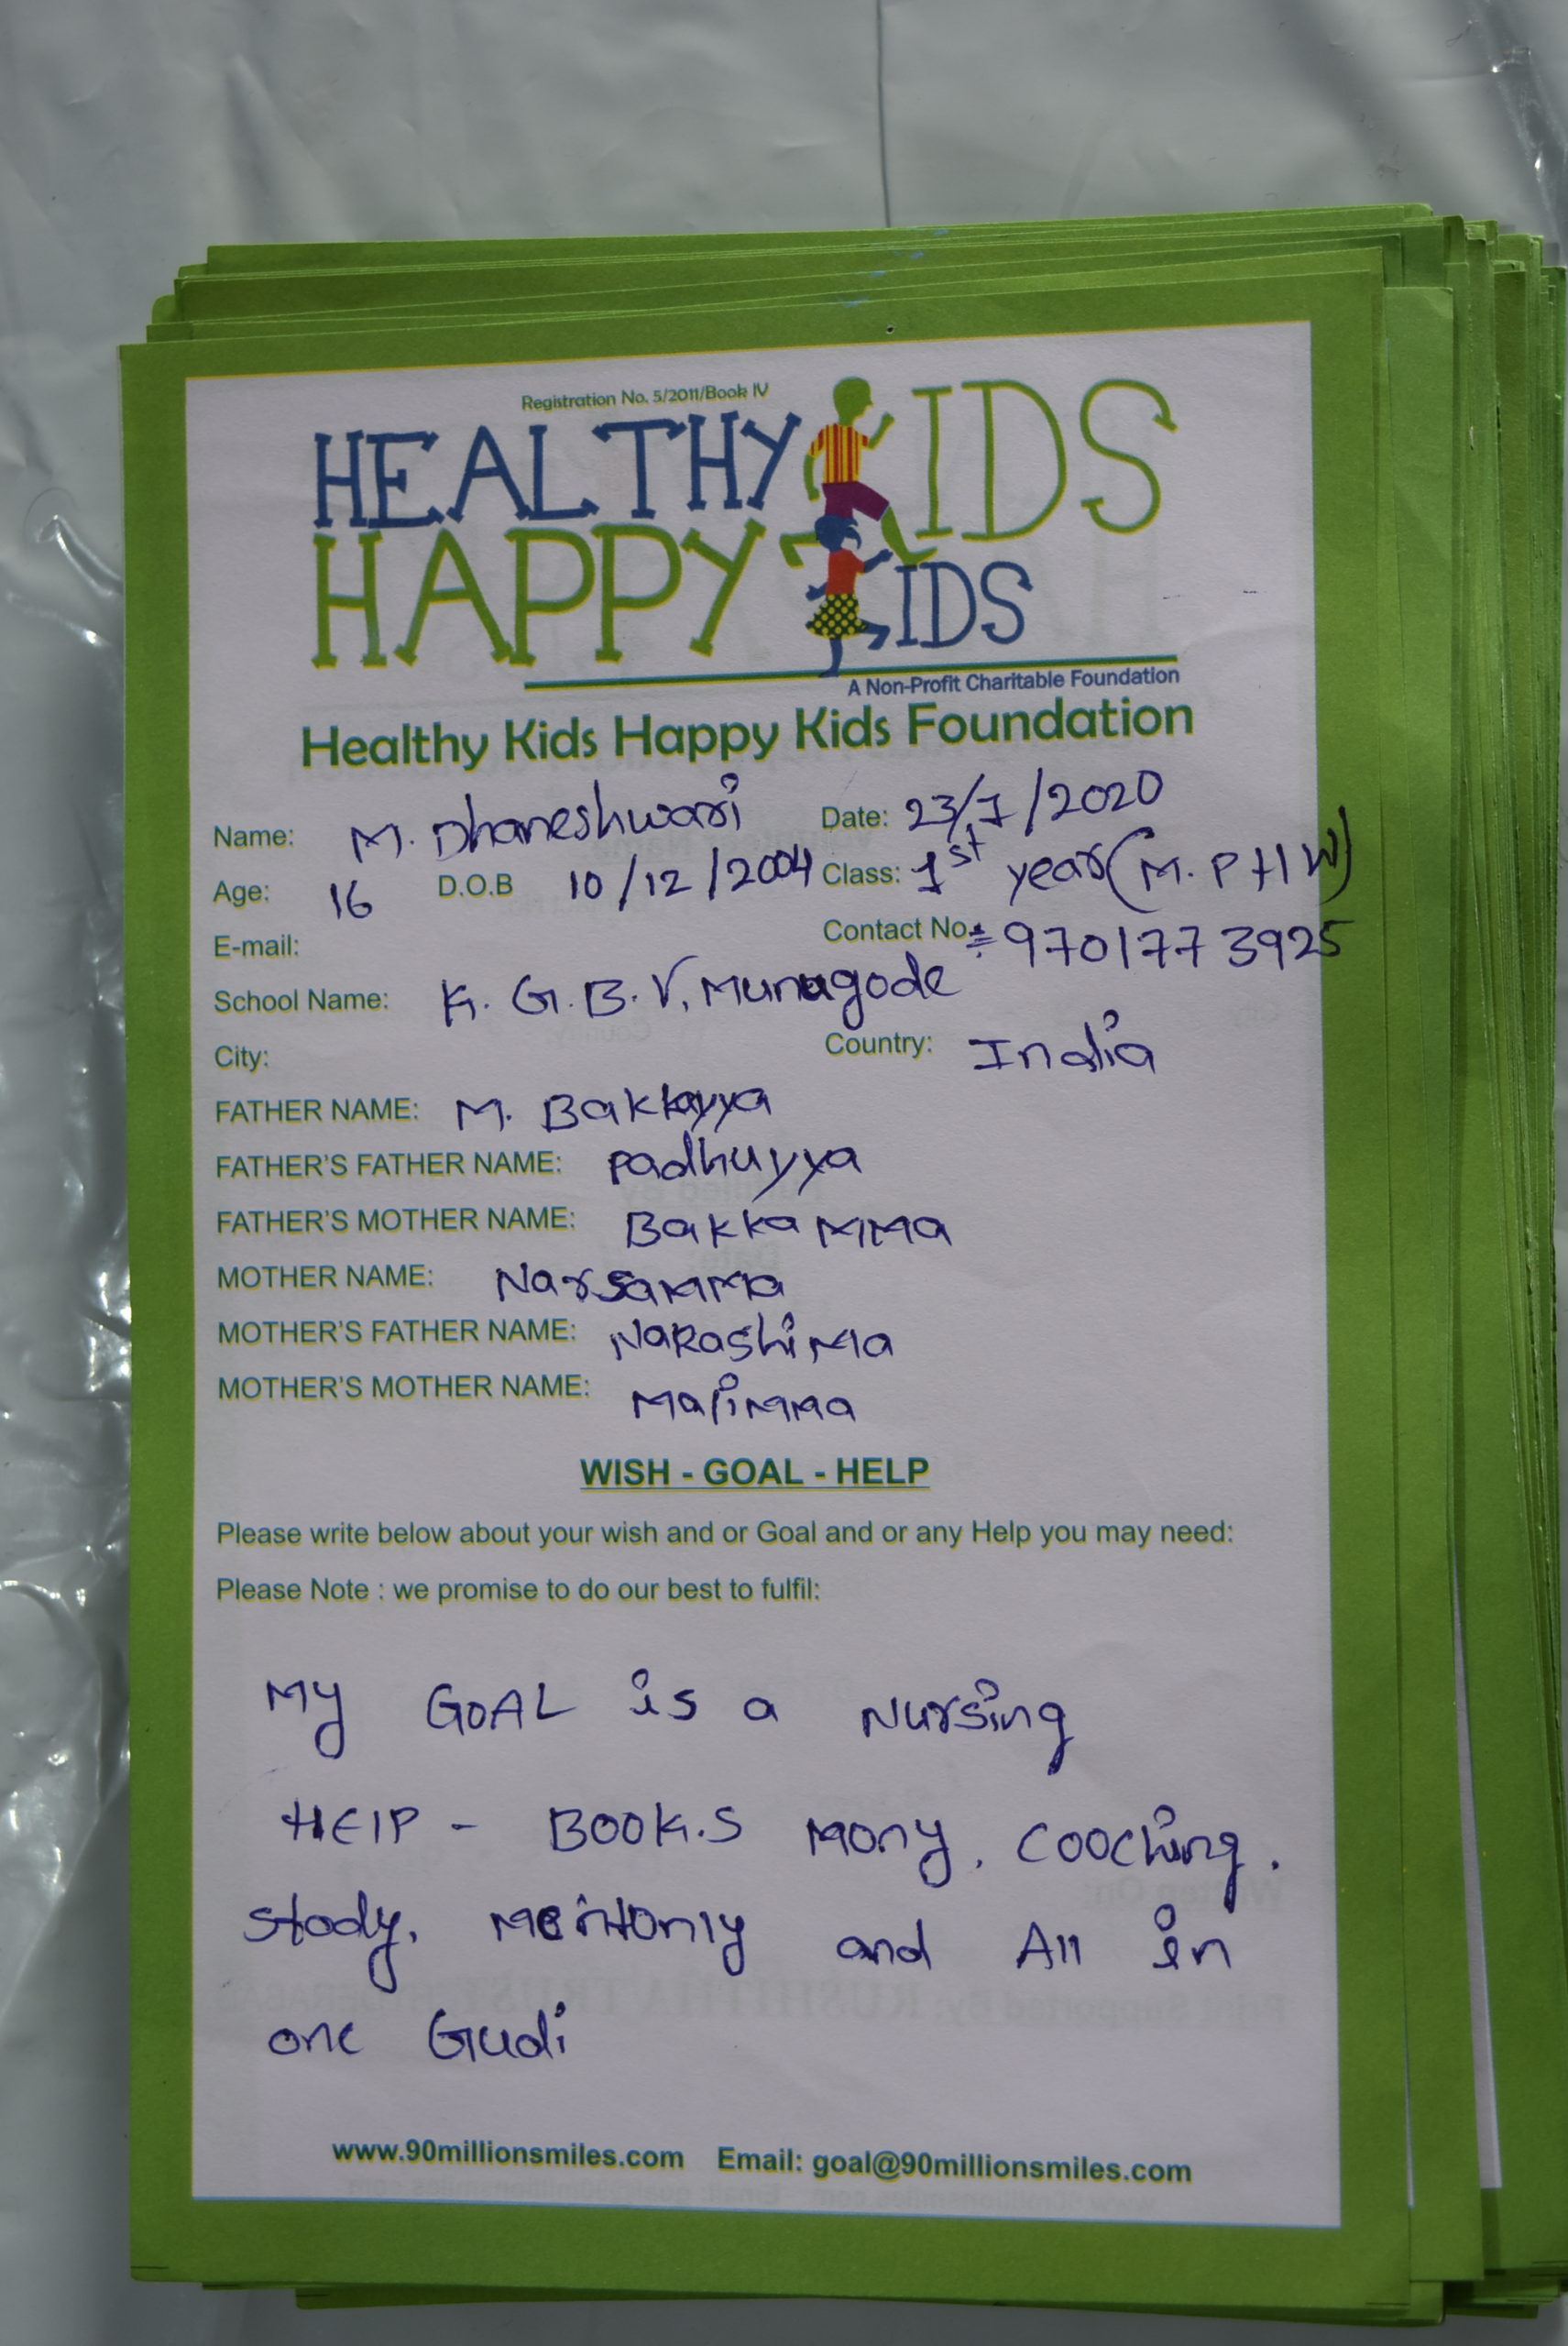 Registration No. 5/2011/Book IV
HEALTHY KIDS
HAPPY KIDS
A Non-Profit Charitable Foundation
Healthy Kids Happy Kids Foundation
Name: M. Dhaneshwari Date: 23/1/2020
Age: 16 D.O.B 10/12/2004 Class: 1st year (M.P.H.W)
E-mail: Contact No.: 9701773925
School Name: K. G. B. V. Munugode
City: Country: India
FATHER NAME: M. Bakkayya
FATHER'S FATHER NAME: Padhuyya
FATHER'S MOTHER NAME: BakkaMMa
MOTHER NAME: Narsamma
MOTHER'S FATHER NAME: NaRashiMa
MOTHER'S MOTHER NAME:
WISH - GOAL - HELP
Please write below about your wish and or Goal and or any Help you may need:
Please Note : we promise to do our best to fulfil:
My GOAL is a Nursing
HElP - BOOK.S Mony. Cooching.
Stody. and All in
one Gudi
www.90millionsmiles.com Email: goal@90millionsmiles.com